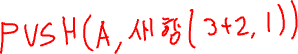 PUSH(A, 새항(3+2, 1))